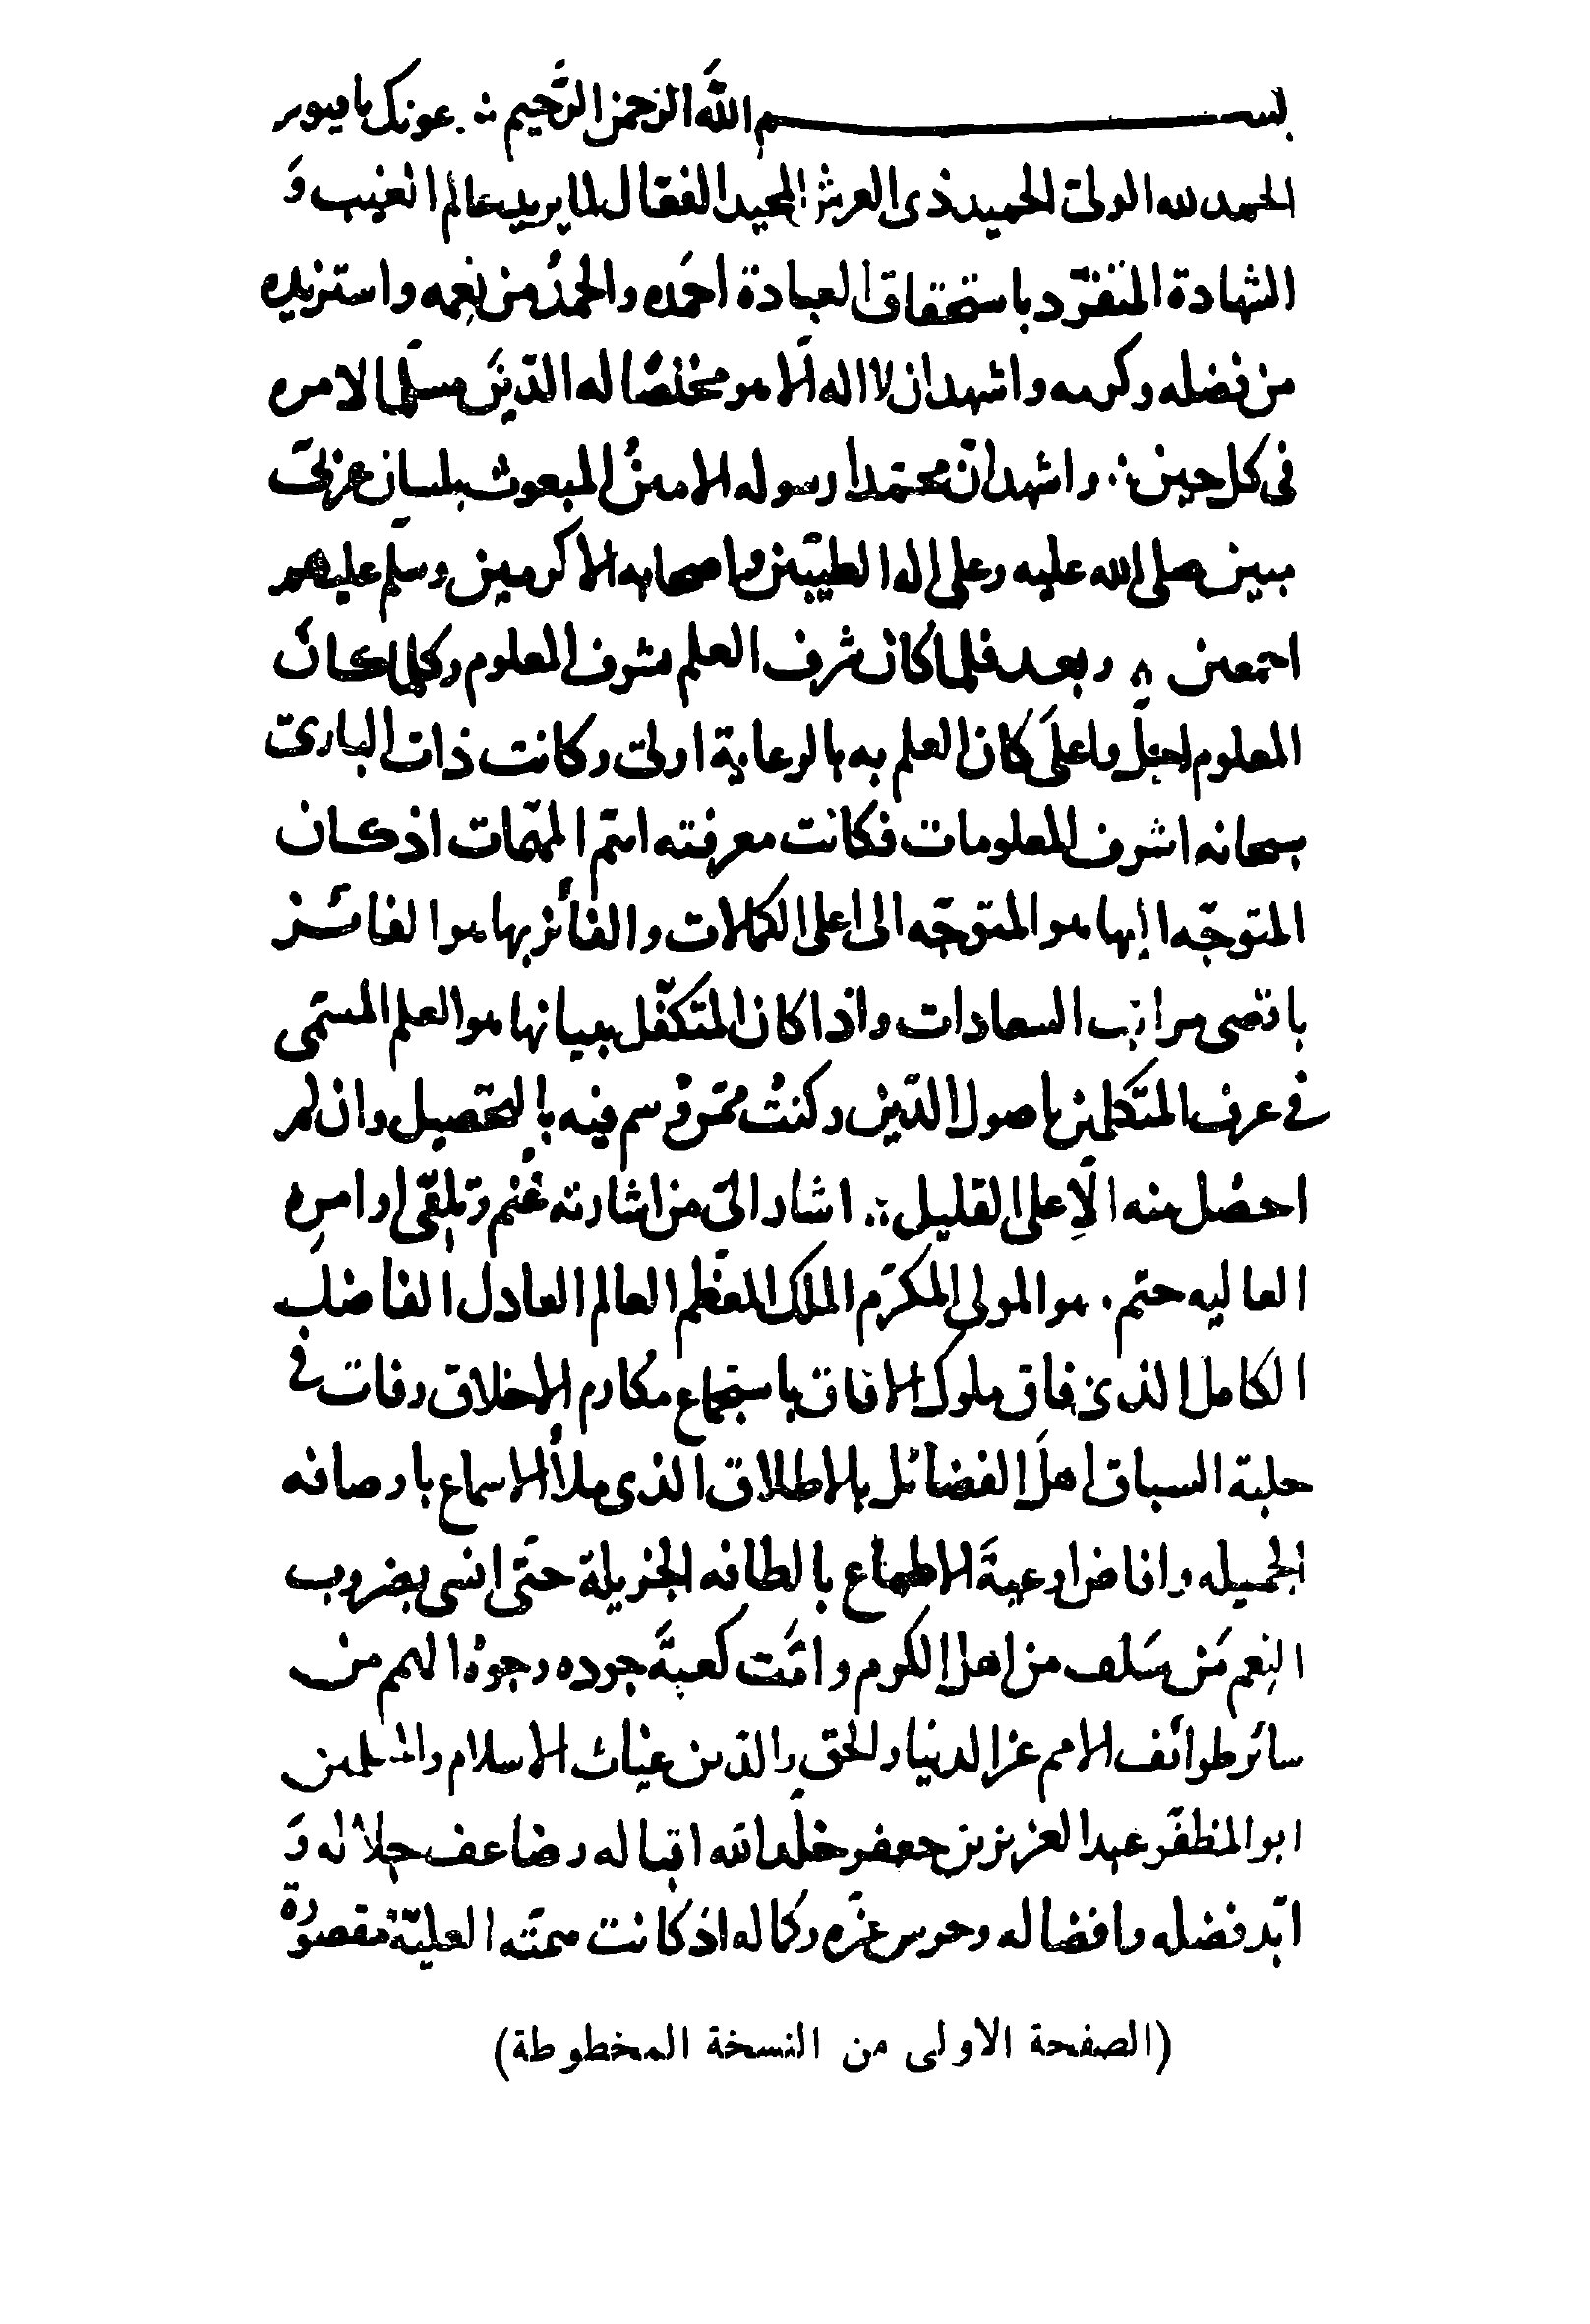 بسم الله الرحمن الرحيم ؞ عونك يا
الحمد لله الولىّ الحميد ذى العرش المجيد الفعّال لما يريد عالم الغيب وَ
الشهادة المتفرّد باستحقاق العبادة احمَده والحمدُ من نِعمه واستزيده
من فضله وكرمه واشهد ان لا اله الّا هو مخلصًا له الدّينَ مسلّما لامره
فى كل حين ؞ واشهد انّ محمّدا رسوله الامينُ المبعوث بلسان عربىّ
مبين صلى الله عليه وعلى اله الطيّبين واصحابه الاكرمين وسلّم عليهم
اجمعين ؞ وبعد فلما كان شرف العلم بشرف المعلوم وكلما كان
المعلوم اجلّ واعلَى كان العلم به بالرعاية اولىّ وكانت ذات البارئ
سبحانه اشرف المعلومات فكانت معرفته اهمّ المهمّات اذ كان
المتوجّه اليها هو المتوجّه الى اعلى الكمالات والفائز بها هو الفائز
باقصى مراتب السعادات واذا كان المتكفّل ببيانها هو العلم المسمّى
فى عرف المتكلمين باصول الدّين وكنتُ ممّن وُسم فيه بالتحصيل وان لم
احصُل منه الّا على القليل ؞ اشار الىّ من اشارته غُنم وتلقّى اوامرِه
العاليه حتم . هو المولى المكرّم الملك المعظّم العالم العادل الفاضل
الكامل الذى فاق ملوك الافاق باستجماع مكارم الاخلاق وفات فى
حلبة السباق اهلَ الفضائل بالاطلاق الذى ملأ الاسماع باوصافه
الجميله وافاض اوعيةَ الاطماع بالطافه الجزيلة حتّى انسى بضروب
النِعم مَن سَلف من اهل الكرم وامَّت كعبةَ جوده وجوهُ الهمم من
سائر طوائف الامم عز الدنيا والحق والدين غياث الاسلام والمسلمين
ابو المظفّر عبد العزيز بن جعفر خلّد الله اقباله وضاعف جلاله وَ
ابّد فضله وافضاله وحرس عزّه وكماله اذ كانت همّته العليّة مقصورة
(الصفحة الاولى من النسخة المخطوطة)